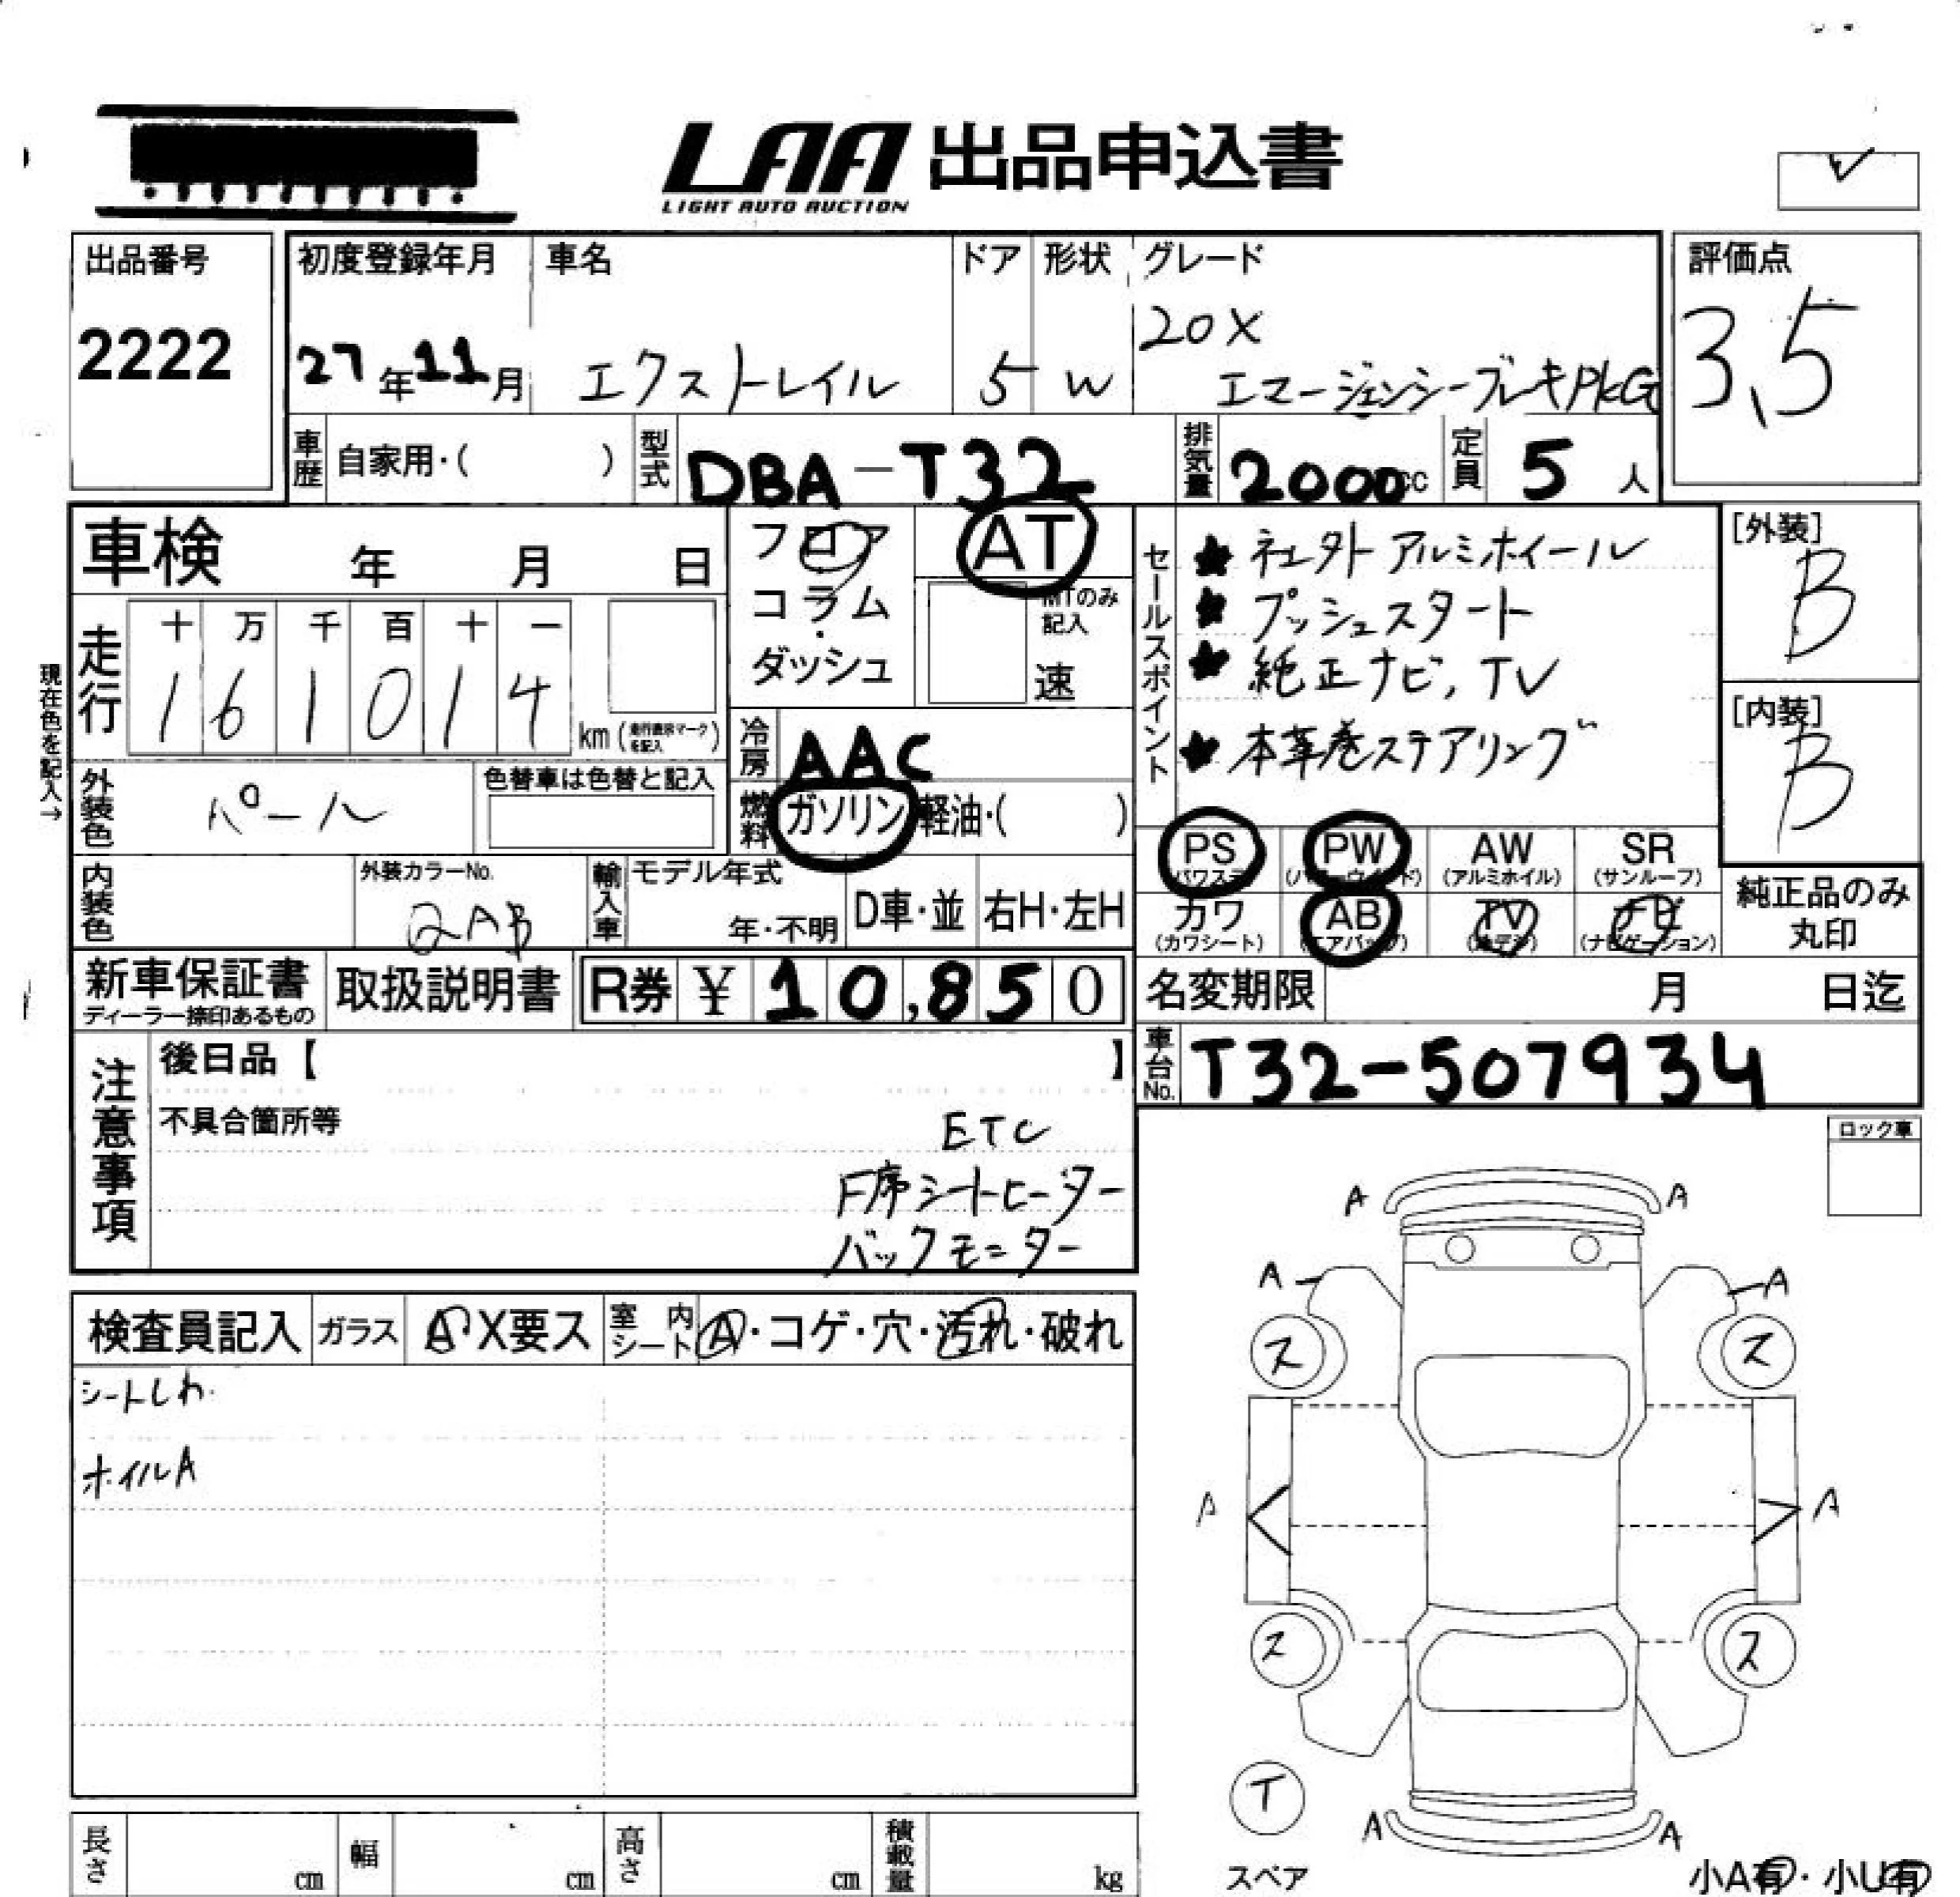 LAA 出品申込書
LIGHT AUTO AUCTION
出品番号
2222
初度登録年月
27年11月
車名
エクストレイル
ドア
5
形状
W
グレード
20X
エマージェンシーブレーキPkG
評価点
3.5
車歴 自家用・( )
型式 DBA-T32
排気量 2000cc
定員 5人
車検 年 月 日
現在色を記入→
走行
十 万 千 百 十 一
1 6 1 0 1 4 km
フロア
コラム
・
ダッシュ
AT
MTのみ
記入
速
冷房 AAC
燃料 ガソリン・軽油・( )
外装色 パール
色替車は色替と記入
内装色
外装カラーNo.
QAB
輸入車
モデル年式
年・不明
D車・並
右H・左H
セールスポイント
★ 社外アルミホイール
★ プッシュスタート
★ 純正ナビ,TV
★ 本革巻ステアリング
[外装]
B
[内装]
B
PS
(パワステ)
PW
(パワーウインド)
AW
(アルミホイル)
SR
(サンルーフ)
カワ
(カワシート)
AB
(エアバッグ)
TV
(ナビゲーション)
純正品のみ
丸印
新車保証書
ディーラー捺印あるもの
取扱説明書
R券 ¥10,850
名変期限 月 日迄
車台No. T32-507934
注意事項
後日品【 】
不具合箇所等
ETC
F席シートヒーター
バックモニター
ロック車
検査員記入
ガラス A・X要ス
室内シート A・コゲ・穴・汚れ・破れ
シートしわ
ホイルA
A A
A A
ス ス
A A
ス ス
T
A A
スペア
小A有・小U有
長さ cm
幅 cm
高さ cm
積載量 kg